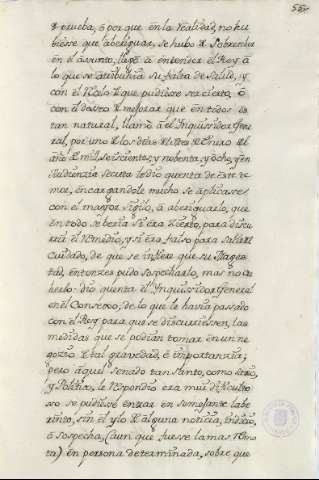 56
prueba, ó porque en la realidad, no hu
biesse que aberiguar, se hubo de Sobreseher
en el asunto, llegó à entender el Rey à
lo que se atribuhia su falta de Salud, y
con el Rezelo de que pudiesse ser cierto, ó
con el deseo de mejorar que en todos es
tan natural, llamó à el Inquissidor Gene
ral, por uno de los dias de Enero del
año de mil seiscientos, y nobenta, y ocho, y en
Audienzia secreta le dio quenta de este te
mor, encargandole mucho se aplicasse
con el mayor sigilo, à aberiguarlo, que
en todo se beria si era Zierto, para discu
rrir el Remedio, y si era falso para salir del
Cuidado, de que se infiere que su Mages
tad, entonzes pudo sospecharlo, mas no
dio quenta el Inquissidor General
en el Consexo, de lo que le havia passado
con el Rey para que se discurriessen, las
medidas que se podian tomar en un ne
gozio de tal gravedad, è importanzia;
pero aquel Senado tan Santo, como
y Politico, le Respondio era mui dificulto
sso se pudiesse entrar en semejante labe
rinto, sin el de alguna noticia, indizio,
ó sospecha, (aun que fuesse la mas Remo
ta) en persona determinada, sobre que